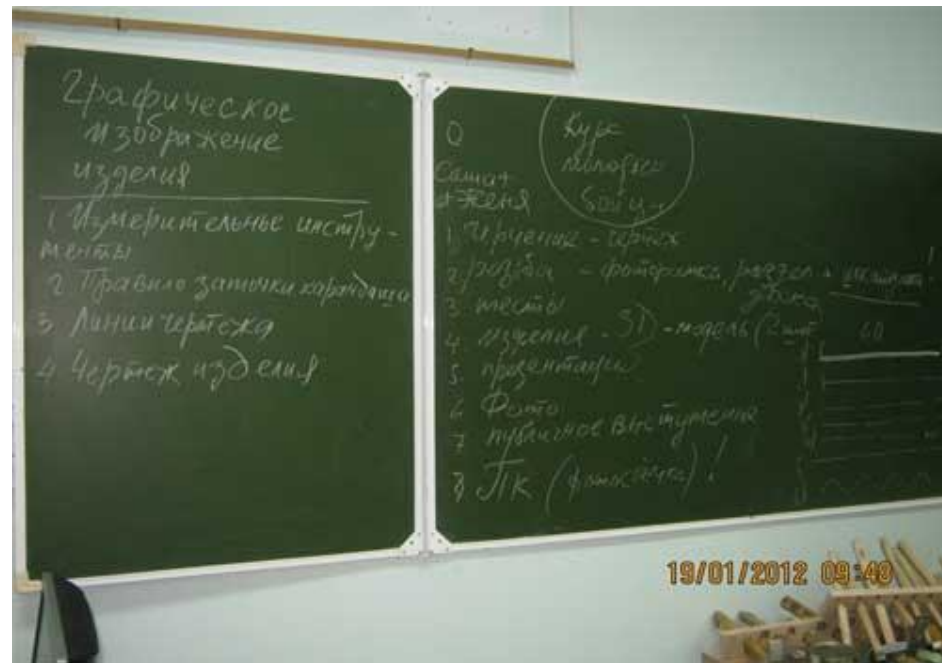 Графическое
изображение
изделия
1 Измерительные инстру-
менты
2 Правило заточки карандаша
3 Линии чертежа
4 Чертеж изделия
Курс
молодого
Саша+
Женя
1 Черчение - чертеж
2 резьба - фоторамка,
3 тесты
4 изделия - 3D - модель (2шт
60
5. презентация
6 Фото
7 публичное выступление
8 ПК ( !
19/01/2012 09:49